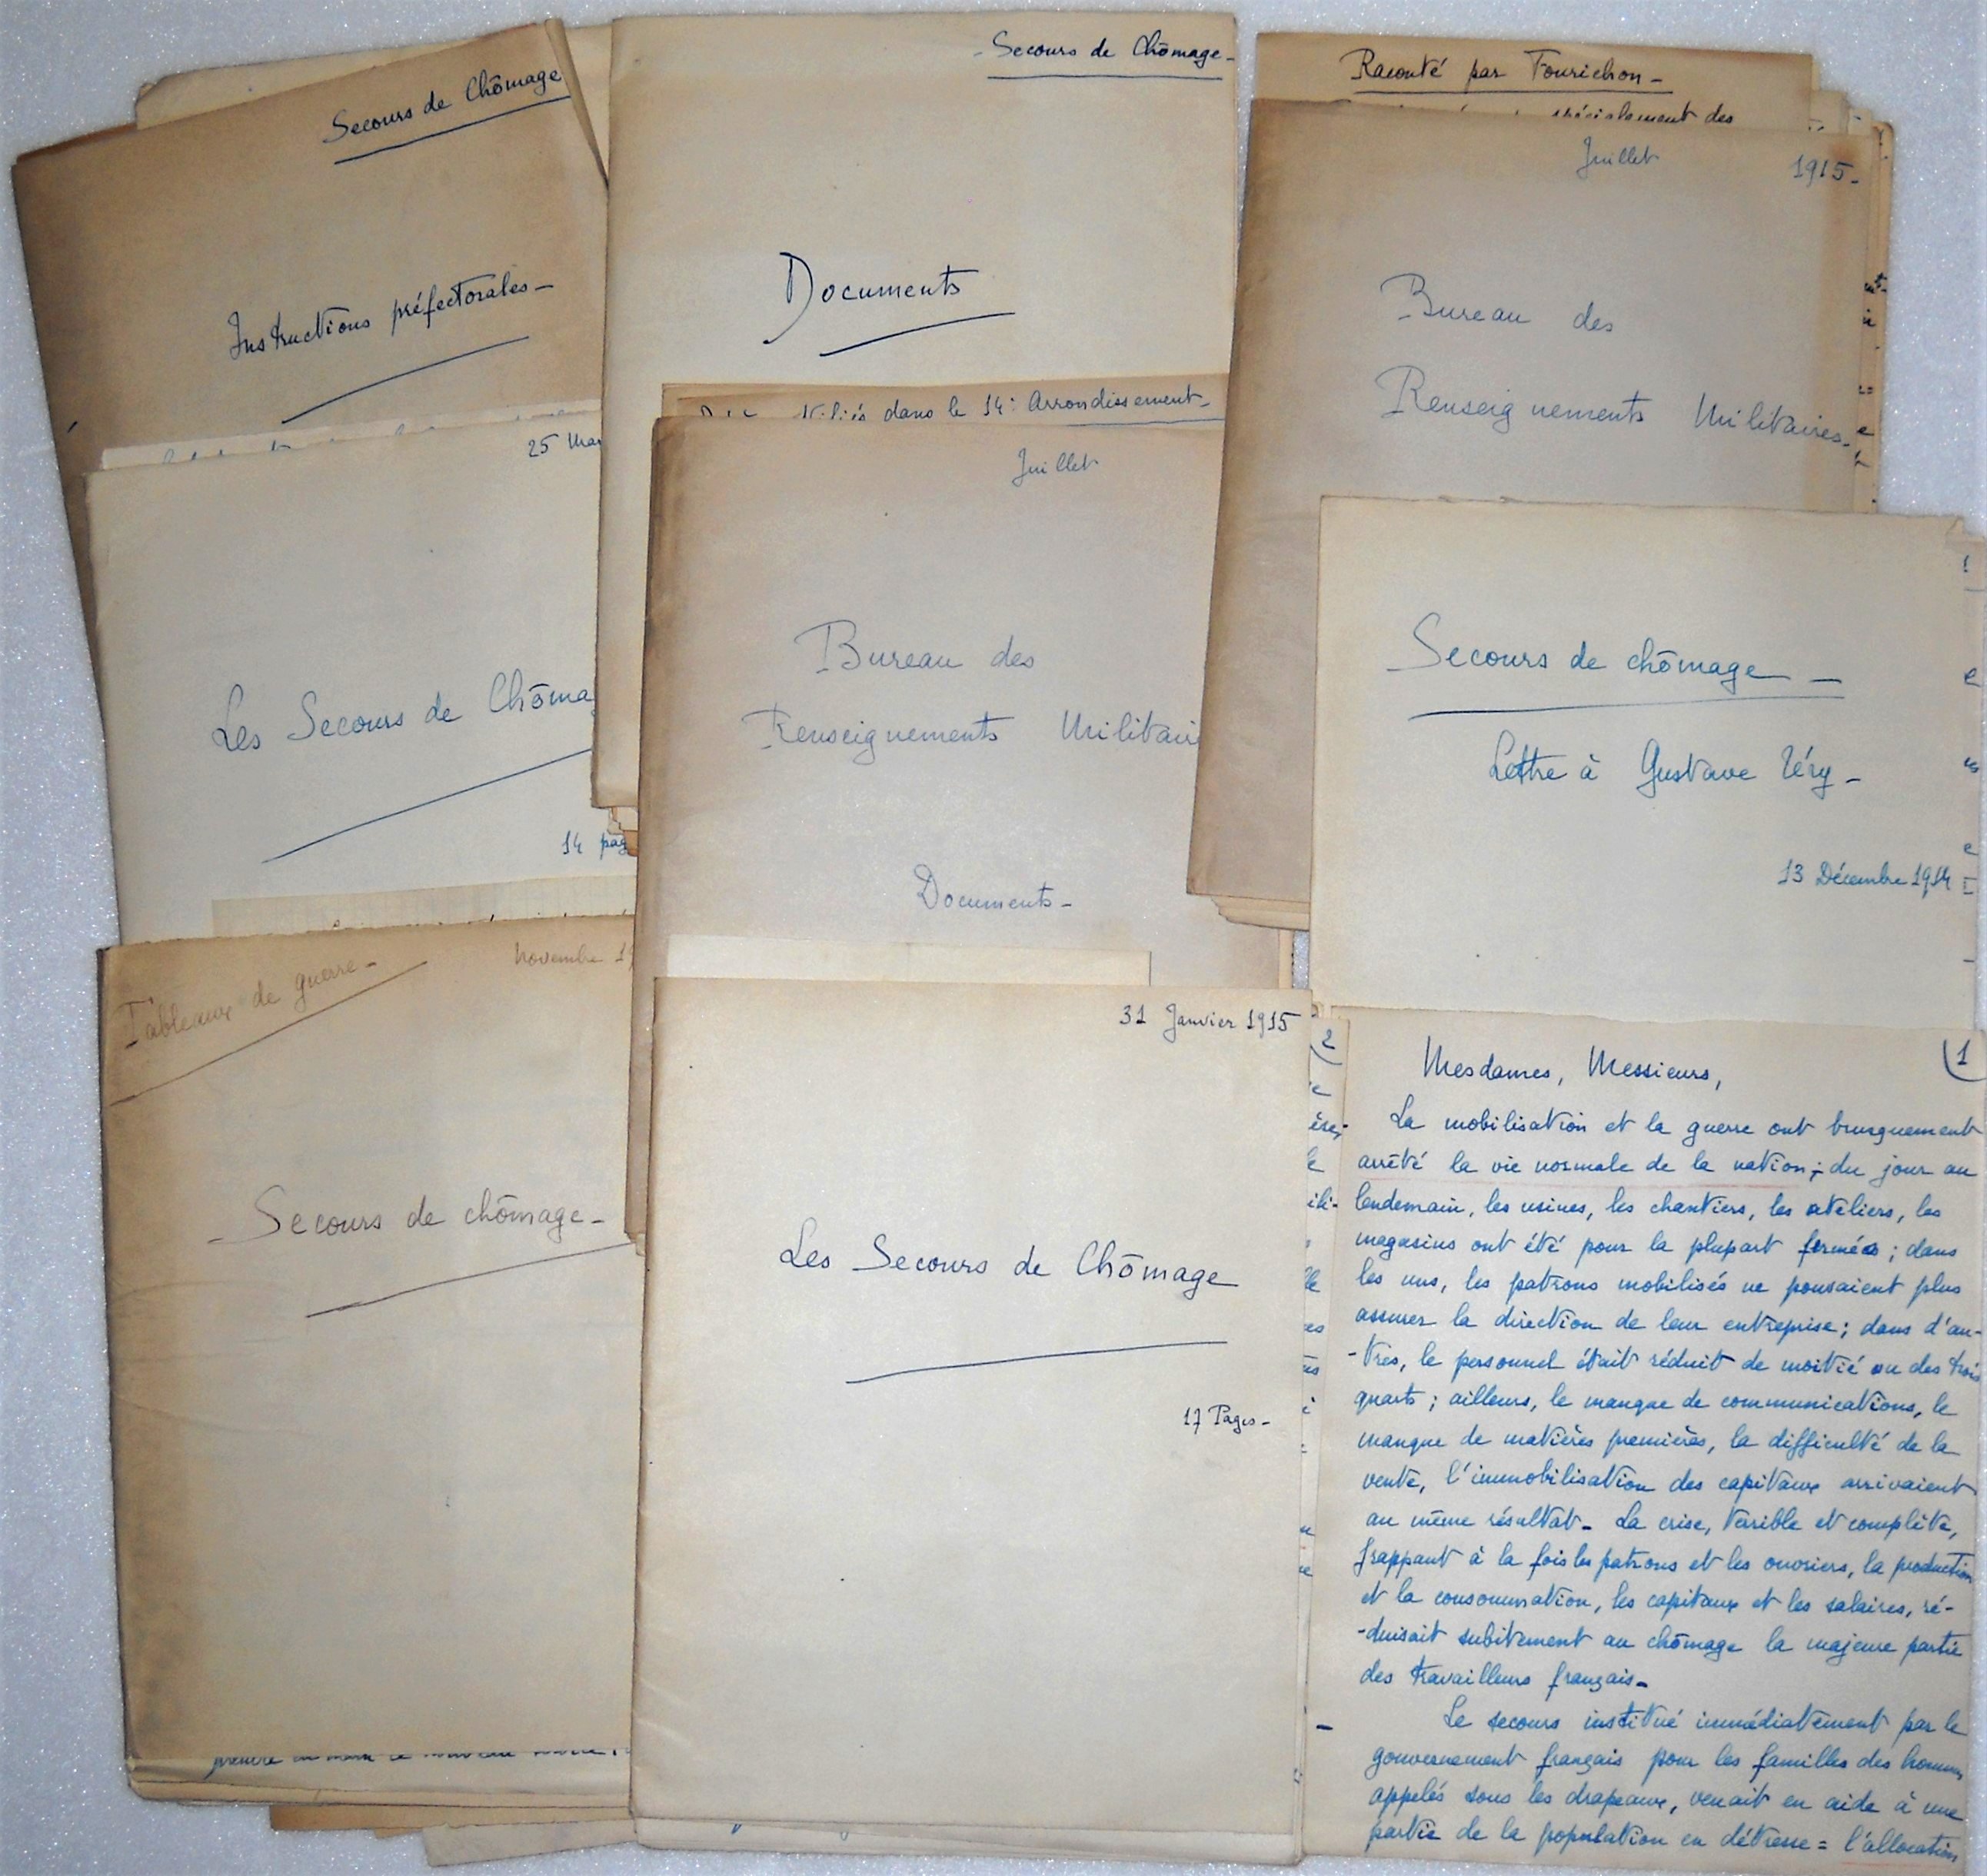 Secours de Chômage
Instructions préfectorales_
25
Les Secours de
14
Tableaux de guerre_
Novembre
Secours de chômage_
_ Secours de Chômage_
Documents
dans le 14e Arrondissement_
Juillet
Bureau des
Renseignements
Documents_
31 Janvier 1915
Les Secours de Chômage
17 Pages_
Raconté par Fourichon_
spécialement des
Juillet 1915_
Bureau des
Renseignements Militaires_
Secours de chômage_
Lettre à Gustave Téry_
13 Décembre 1914
2
1
Mesdames, Messieurs,
La mobilisation et la guerre ont brusquement
arrêté la vie normale de la nation ; du jour au
lendemain, les usines, les chantiers, les ateliers, les
magasins ont été pour la plupart fermés ; dans
les uns, les patrons mobilisés ne pouvaient plus
assurer la direction de leur entreprise ; dans d'au-
-tres, le personnel était réduit de moitié ou des trois
quarts ; ailleurs, le manque de communications, le
manque de matières premières, la difficulté de la
vente, l'immobilisation des capitaux arrivaient
au même résultat_ La crise, terrible et complète,
frappant à la fois les patrons et les ouvriers, la production
et la consommation, les capitaux et les salaires, ré-
-duisait subitement au chômage la majeure partie
des travailleurs français_
Le secours institué immédiatement par le
gouvernement français pour les familles des hommes
appelés sous les drapeaux, venait en aide à une
partie de la population en détresse = l'allocation